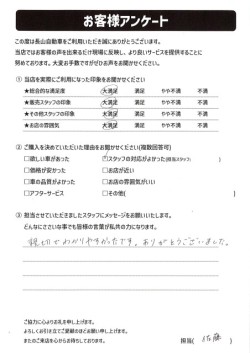 お客様アンケート
この度は長山自動車をご利用いただき誠にありがとうございます。
当店ではお客様の声を出来るだけ現場に反映し、より良いサービスを提供することに
努めております。大変お手数ですがぜひお声をお聞かせください。
① 当店を実際にご利用になった印象をお聞かせください
★総合的な満足度 大満足 満足 やや不満 不満
★販売スタッフの印象 大満足 満足 やや不満 不満
★その他スタッフの印象 大満足 満足 やや不満 不満
★お店の雰囲気 大満足 満足 やや不満 不満
② ご購入を決めていただいた理由をお聞かせください(複数回答可)
□欲しい車があった ☑スタッフの対応がよかった(担当スタッフ: )
□価格が安かった □お店が近い
□車の品質がよかった □お店の雰囲気がいい
□アフターサービス □その他( )
③ 担当させていただきましたスタッフにメッセージをお願いいたします。
どんなにささいな事でも皆様の言葉が私共の力になります。
親切でわかりやすかったです。ありがとうございました。
ご協力に心よりお礼を申し上げます。
よろしくお引き立てご愛顧のほどお願い申し上げます。
またのご来店を心からお待ちしております。 担当( 佐藤 )